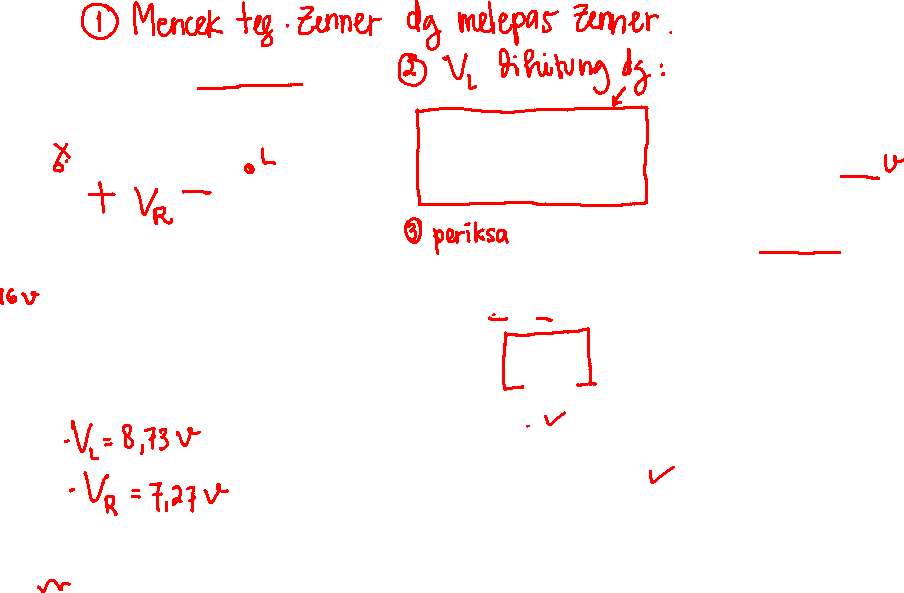 ① Mencek teg. Zenner dg melepas Zenner.
② V_L Dihitung dg:
+ V_R −
L
V
③ periksa
16 V
· V_L = 8,73 V
· V_R = 7,27 V